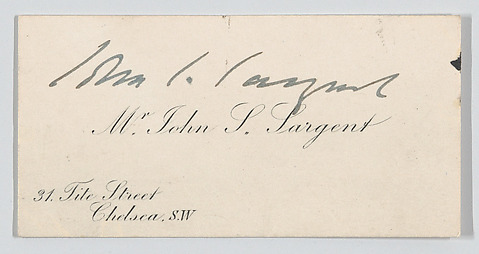 John S. Sargent
Mr. John S. Sargent
31. Tite Street
Chelsea. S.W